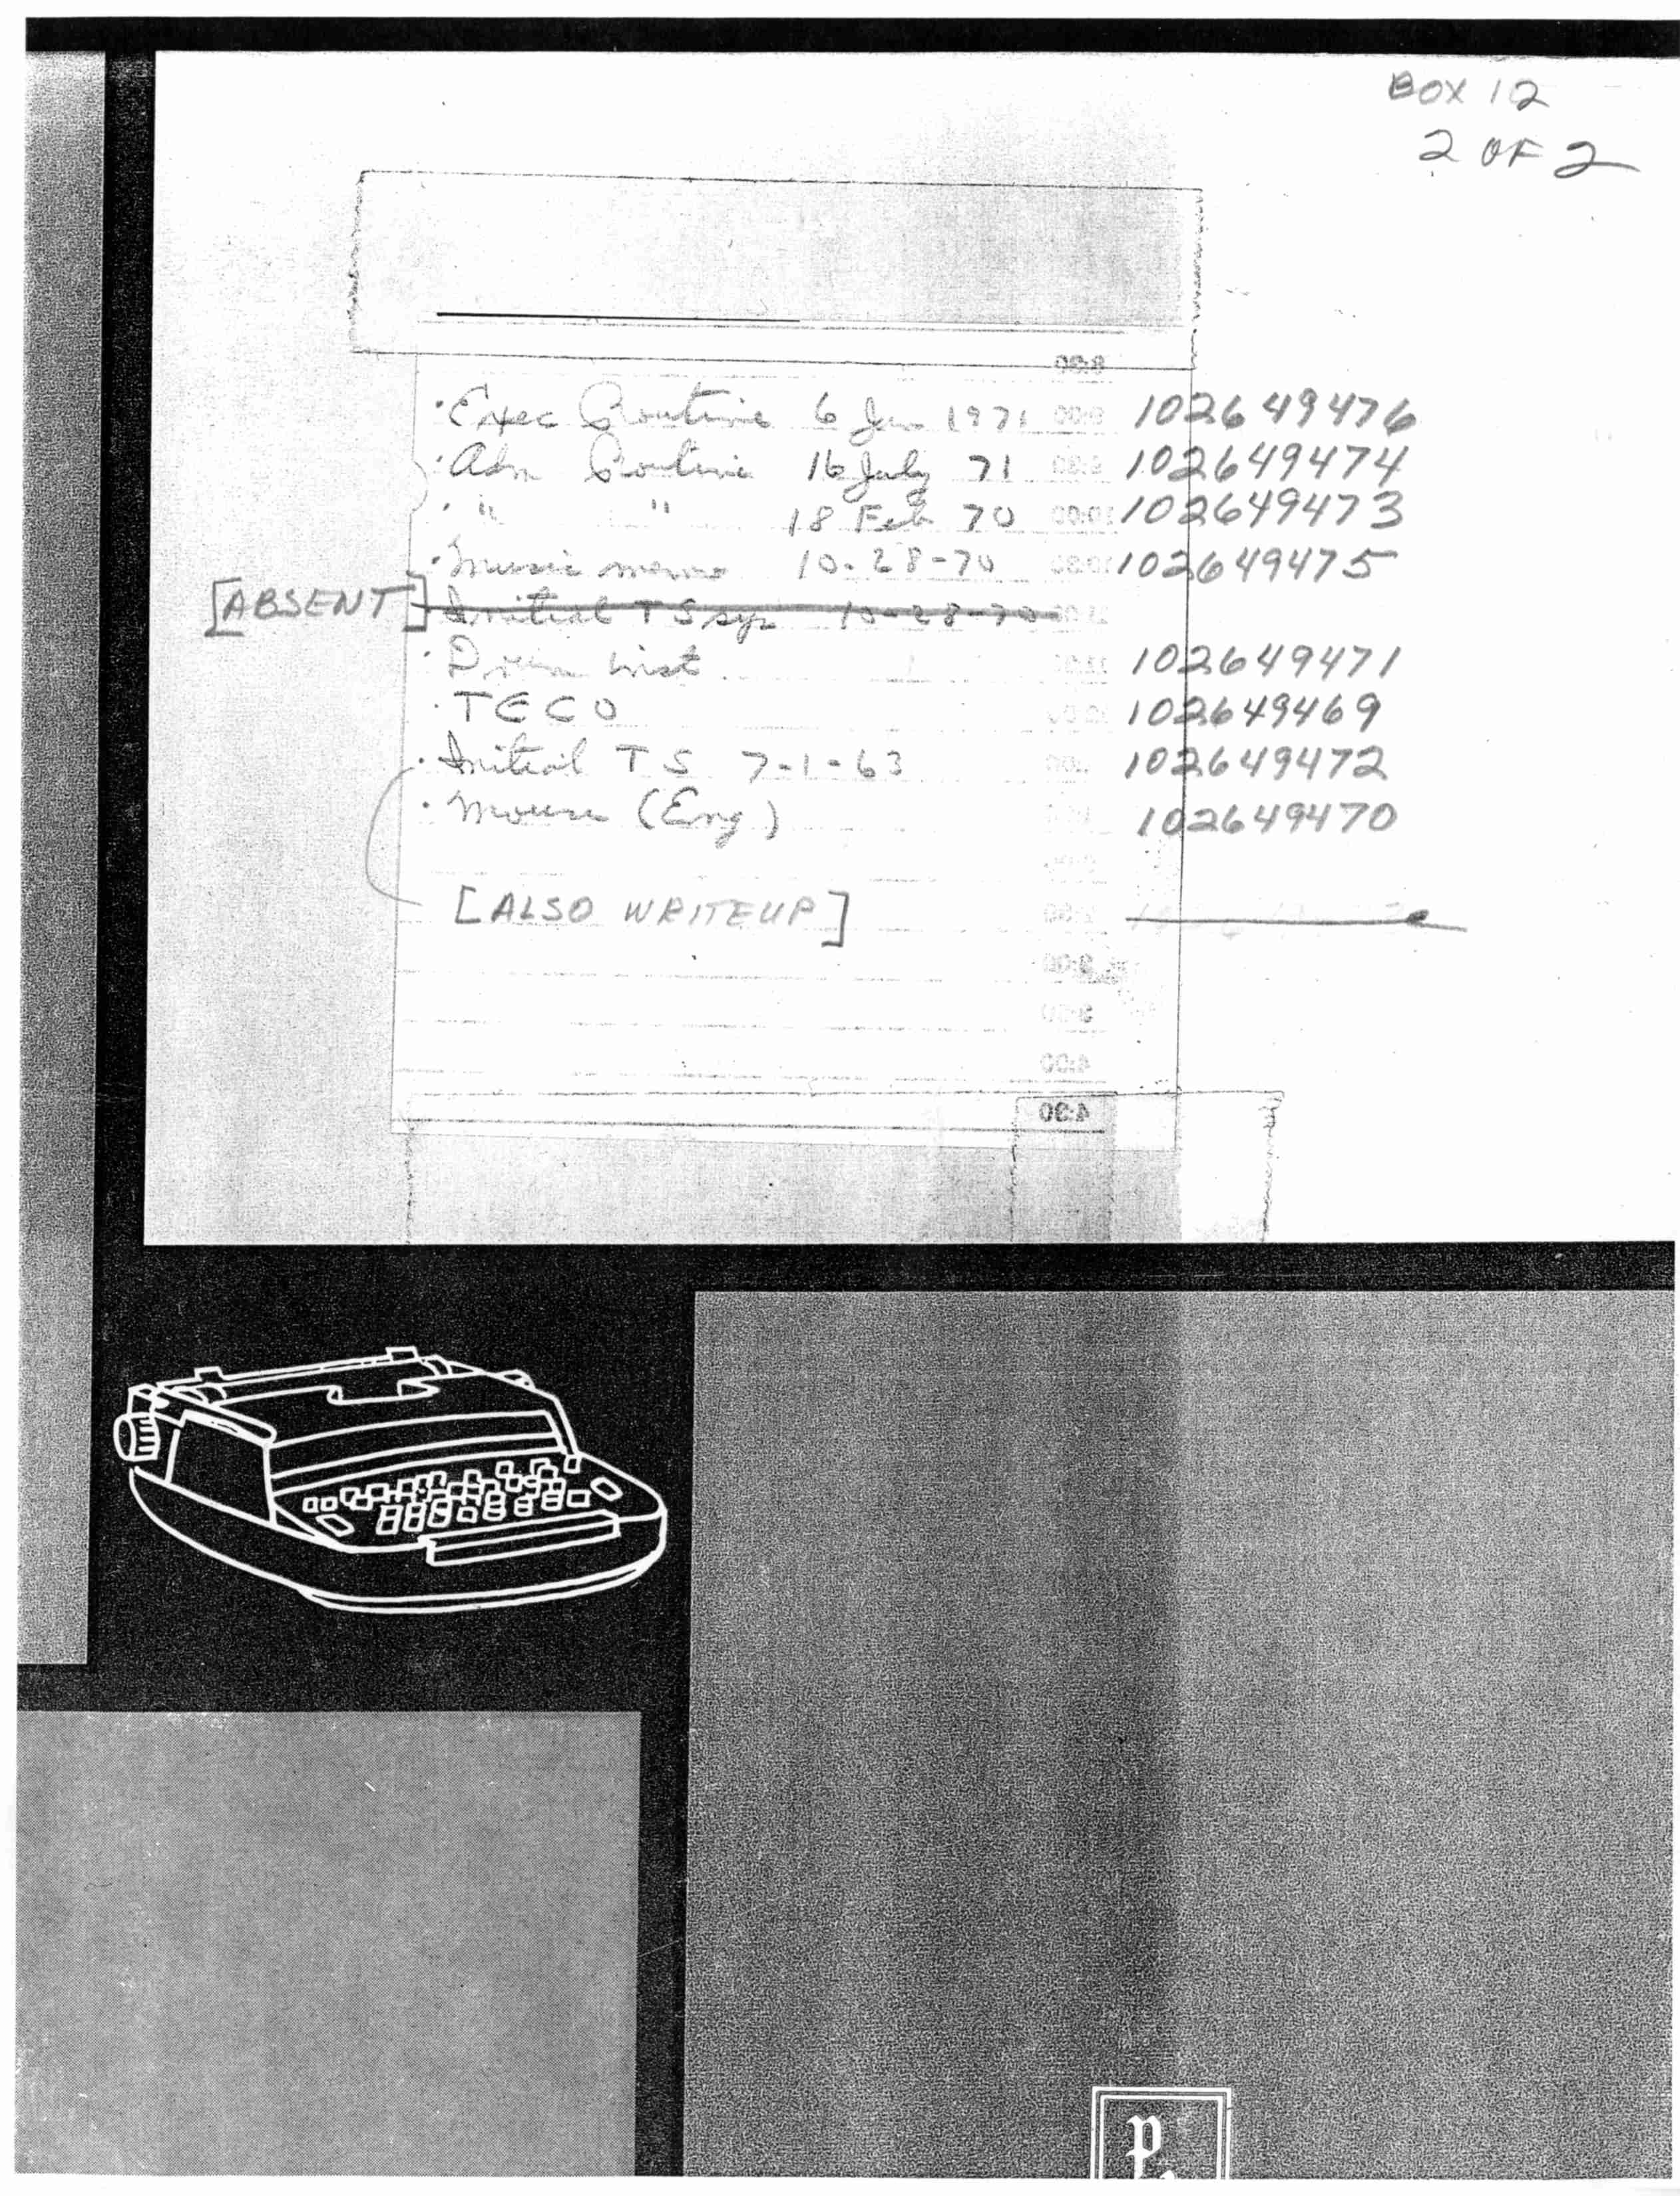 BOX 12
2 OF 2
8:30
· Exec Routine 6 Jan 1971 9:00 102649476
· Adm Routine 16 July 71 9:30 102649474
· " " 18 Feb 70 10:00 102649473
· Music memo 10-28-70 10:30 102649475
[ABSENT] Initial TS sys 10-28-70
· Drum List 102649471
· TECO 102649469
· Initial TS 7-1-63 102649472
· Mouse (Eng) 102649470
[ALSO WRITEUP]
3:00
4:00
4:30
p